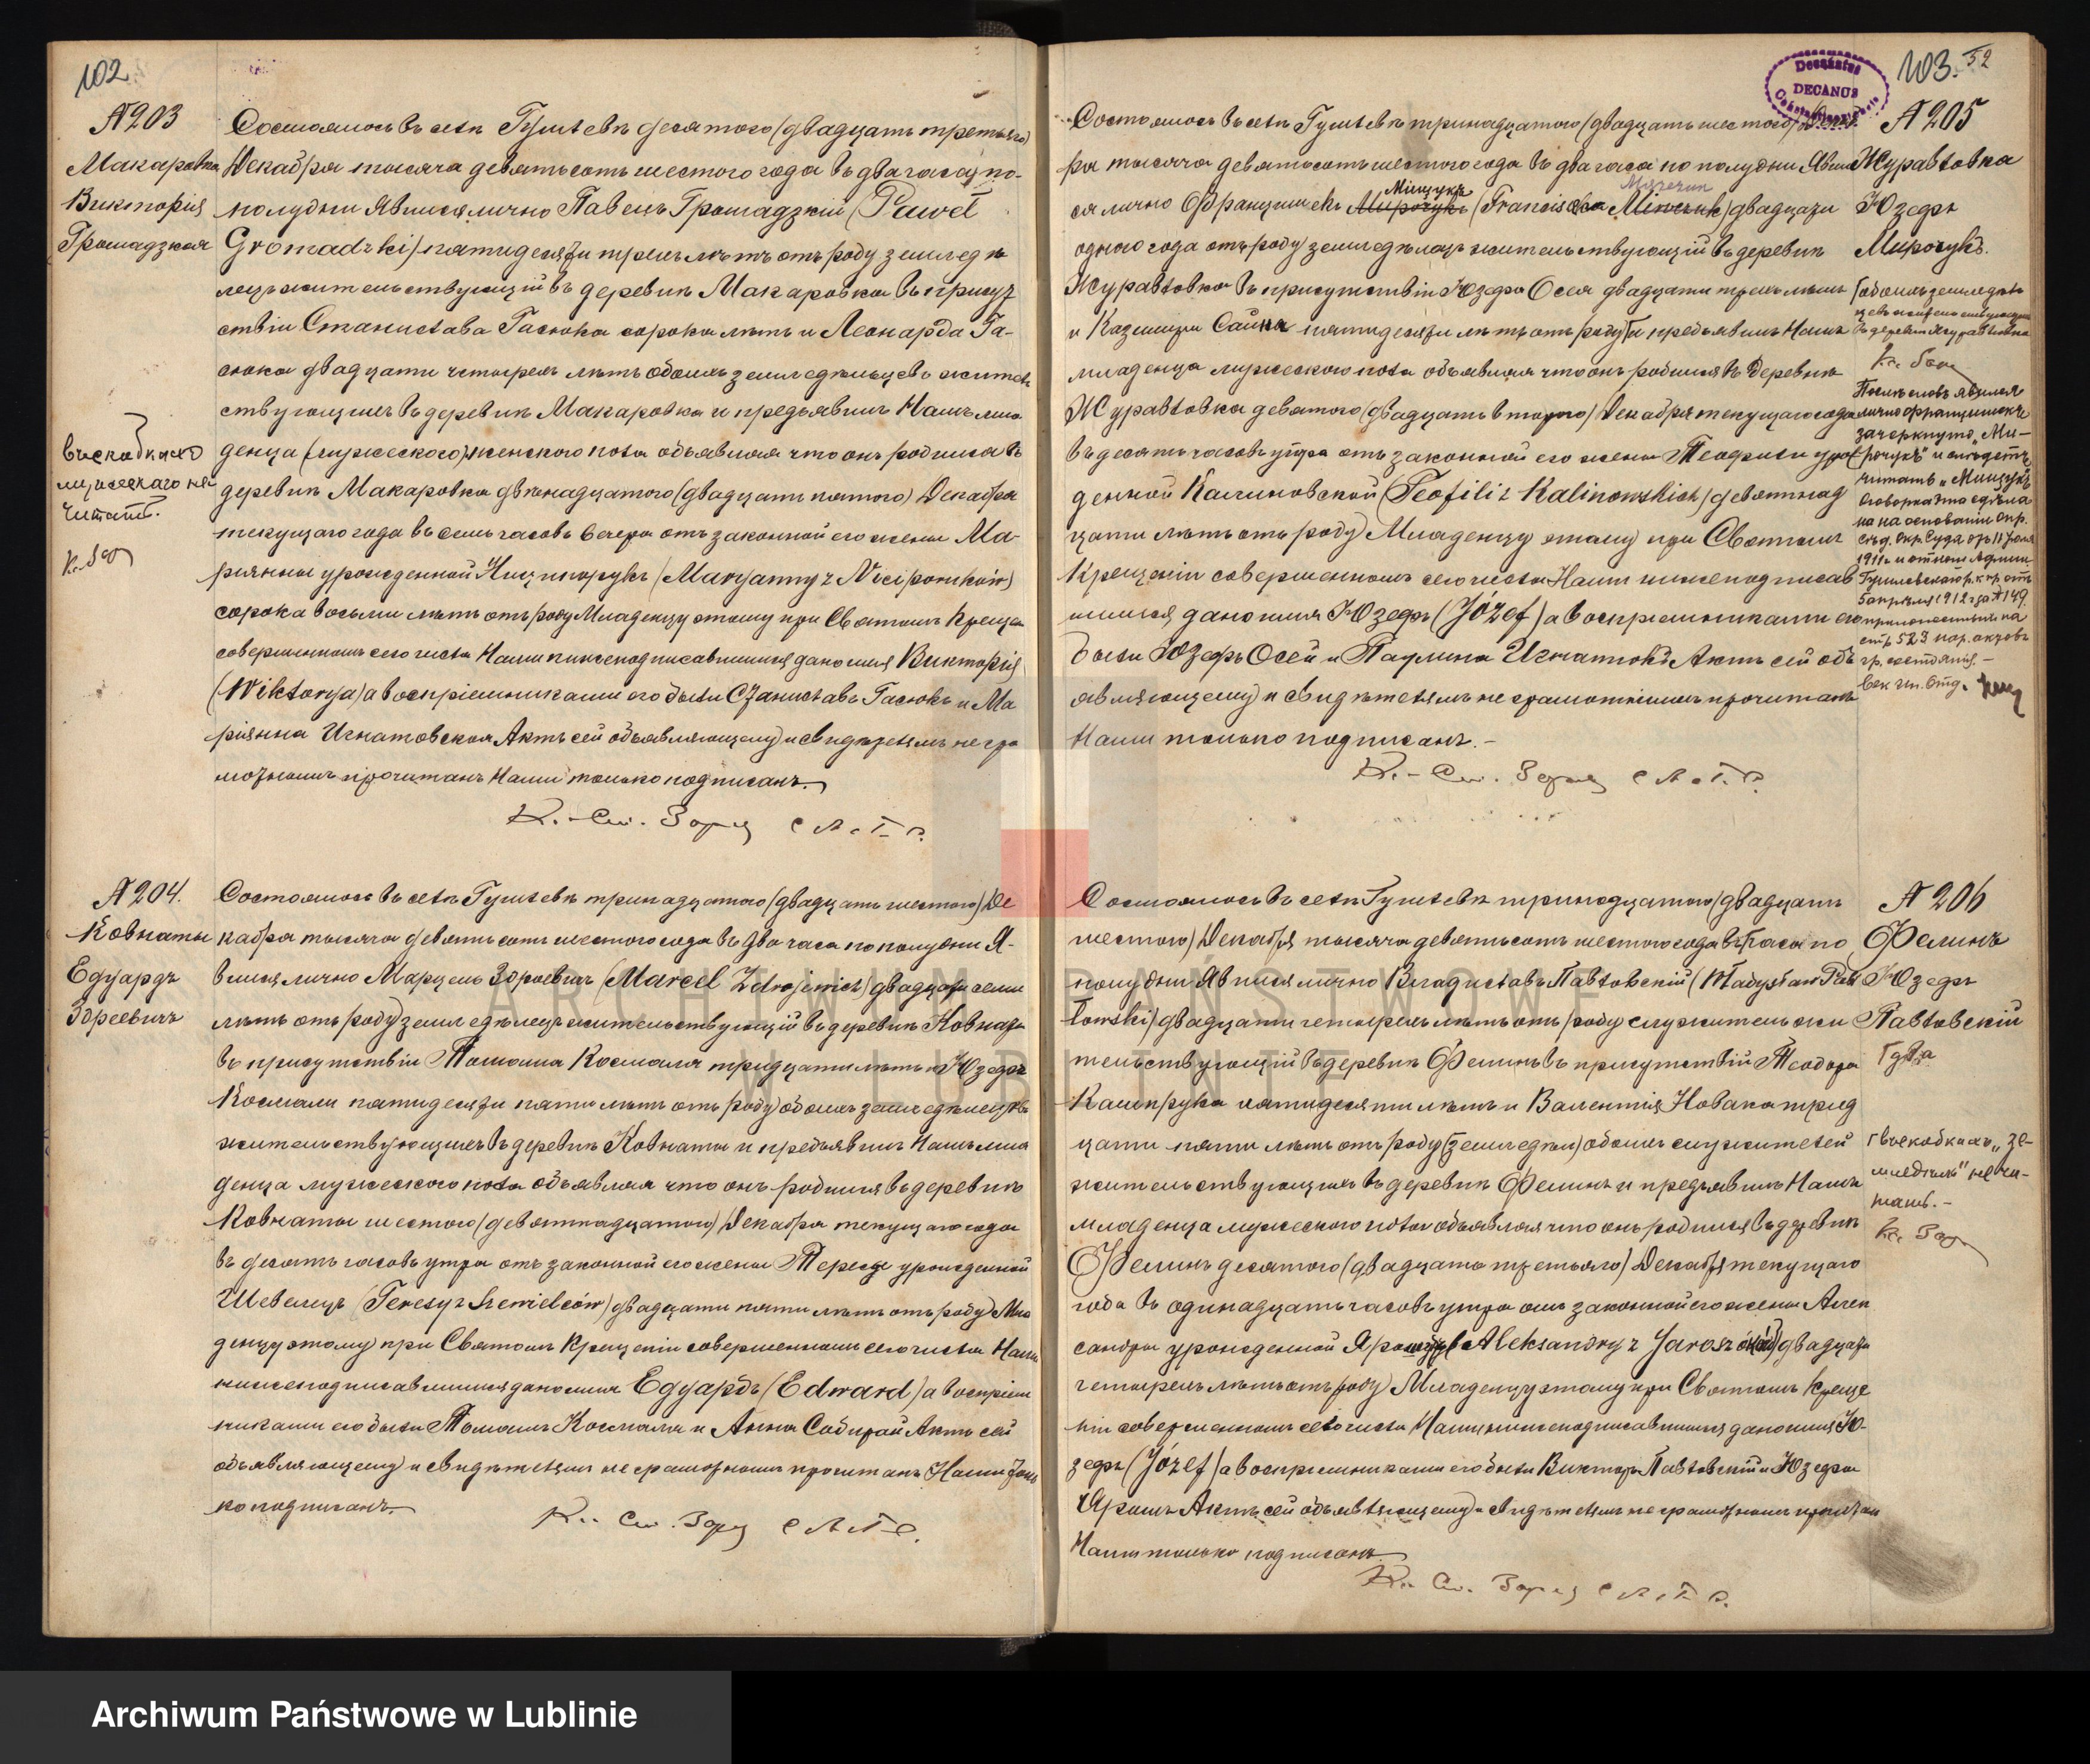 102
№ 203
Макаровка
Викторія
Громадзкая
Состоялось въ селѣ Гушлевѣ десятого (двадцать третьяго)
Декабря тысяча девятьсотъ шестого года въ два часа по-
полудни Явился лично Павелъ Громадзкій (Paweł
Gromadzki) пятидесяти трехъ лѣтъ отъ роду земледѣ
лецъ жительствующій въ деревнѣ Макаровка въ присут
ствіи Станислава Гасюка сорока лѣтъ и Леонарда Га-
сюка двадцати четырехъ лѣтъ обоихъ земледѣльцевъ житель
ствующихъ въ деревнѣ Макаровка и предъявилъ Намъ мла
денца (мужескаго) женскаго пола объявляя что онъ родился въ
деревнѣ Макаровка двѣнадцатого (двадцать пятого) Декабря
текущаго года въ семь часовъ вечера отъ законной его жены Ма-
ріянны урожденной Ниципорукъ (Maryanny z Niciporuków)
сорока восьми лѣтъ отъ роду Младенцу этому при Святомъ Креще
совершенномъ сего числа Нами нижеподписавшимся дано имя Викторія
(Wiktorya) а воспріемниками его были Станиславъ Гасюкъ и Ма
ріянна Игнатовская Актъ сей объявляющему и свидѣтелямъ негра
мотнымъ прочитанъ Нами только подписанъ.
К. Ст. С А. Г. С.
въ скобкахъ
мужескаго не
читать.
№ 204.
Ковнаты
Едуардъ
Здроевичъ
Состоялось въ селѣ Гушлевѣ тринадцатого (двадцать шестого) Де
кабря тысяча девятьсотъ шестого года въ два часа по полудни Я-
вился лично Марцель Здроевичъ (Marcel Zdrojewicz) двадцати семи
лѣтъ отъ роду земледѣлецъ жительствующій въ деревнѣ Ковнаты
въ присутствіи Томаша Космаля тридцати лѣтъ и Юзефа
Космали пятидесяти пяти лѣтъ отъ роду обоихъ земледѣльцевъ
жительствующихъ въ деревнѣ Ковнаты и предъявилъ Намъ мла
денца мужескаго пола объявляя что онъ родился въ деревнѣ
Ковнаты шестого (девятнадцатого) Декабря текущаго года
въ десять часовъ утра отъ законной его жены Терезы урожденной
Шевелецъ (Teresy z Szewielców) двадцати пяти лѣтъ отъ роду Мла
денцу этому при Святомъ Крещеніи совершенномъ сего числа Нами
нижеподписавшимся дано имя Едуардъ (Edward) а воспріем
никами его были Томашъ Космаля и Анна Сабирай Актъ сей
объявляющему и свидѣтелямъ неграмотнымъ прочитанъ Нами толь
ко подписанъ.
К. Ст. С А. Г. С.
103. 52
DECANUS
№ 205
Журавловка
Юзефъ
Мирочукъ.
Состоялось въ селѣ Гушлевѣ тринадцатого (двадцать шестого) Декаб
ря тысяча девятьсотъ шестого года въ два часа по полудни Явил
Мищукъ
ся лично Францишекъ Мирочукъ (Franciszka) двадцати
одного года отъ роду земледѣлецъ жительствующій въ деревнѣ
Журавловка въ присутствіи Юзефа Осея двадцати трехъ лѣтъ
и Казимира пятидесяти лѣтъ отъ роду и предъявилъ Намъ
младенца мужескаго пола объявляя что онъ родился въ деревнѣ
Журавловка девятого (двадцать второго) Декабря текущаго года
въ десять часовъ утра отъ законной его жены Теофили урож
денной Калиновской (Teofili z Kalinowskich) девятнад
цати лѣтъ отъ роду Младенцу этому при Святомъ
Крещеніи совершенномъ сего числа Нами нижеподписав
шимся дано имя Юзефъ (Józef) а воспріемниками его
были Юзефъ Осей и Паулина Игнатюкъ Актъ сей объ
являющему и свидѣтелямъ неграмотнымъ прочитанъ
Нами только подписанъ.-
К.- Ст. С А. Г. С.
обоихъ земледѣль
цевъ жительствующихъ
въ деревнѣ Журавловка
Послѣ словъ явился
лично Францишекъ
зачеркнуто „Ми-
рочукъ" и слѣдуетъ
читать „Мищукъ"
Оговорка эта сдѣла
на на основаніи опр.
Сѣд. Окр. Суда отъ 11
1911 г. и отнош. Админ.
Гушлевскаго р. к. пр. отъ
5 апрѣля 1912 г. за № 149
стр. 523
№ 206
Фелинъ
Юзефъ
Павловскій
Состоялось въ селѣ Гушлевѣ тринадцатого (двадцать
шестого) Декабря тысяча девятьсотъ шестого года въ часа по
полудни Явился лично Владиславъ Павловскій (Władysław Paw
łowski) двадцати четырехъ лѣтъ отъ роду служитель жи
тельствующій въ деревнѣ Фелинъ въ присутствіи Теодора
пятидесяти лѣтъ и Валентія Новака трид
цати пяти лѣтъ отъ роду (земледѣл) обоихъ служителей
жительствующихъ въ деревнѣ Фелинъ и предъявилъ Намъ
младенца мужескаго пола объявляя что онъ родился въ деревнѣ
Фелинъ десятого (двадцать третьяго) Декабря текущаго
года въ одинадцать часовъ утра отъ законной его жены Алек
сандры урожденной (Aleksandry z) двадцати
четырехъ лѣтъ отъ роду Младенцу этому при Святомъ Креще
ніи совершенномъ сего числа Нами нижеподписавшимся дано имя Ю-
зефъ (Józef) а воспріемниками его были Викторъ Павловскій и Юзефа
Ярошъ Актъ сей объявляющему и свидѣтелямъ неграмотнымъ прочитан
Нами только подписанъ.
К. Ст. С А. Г. С.
въ скобкахъ „зе-
мледѣл" не чи-
тать.-
ARCHIWUM PAŃSTWOWE
W LUBLINIE
Archiwum Państwowe w Lublinie